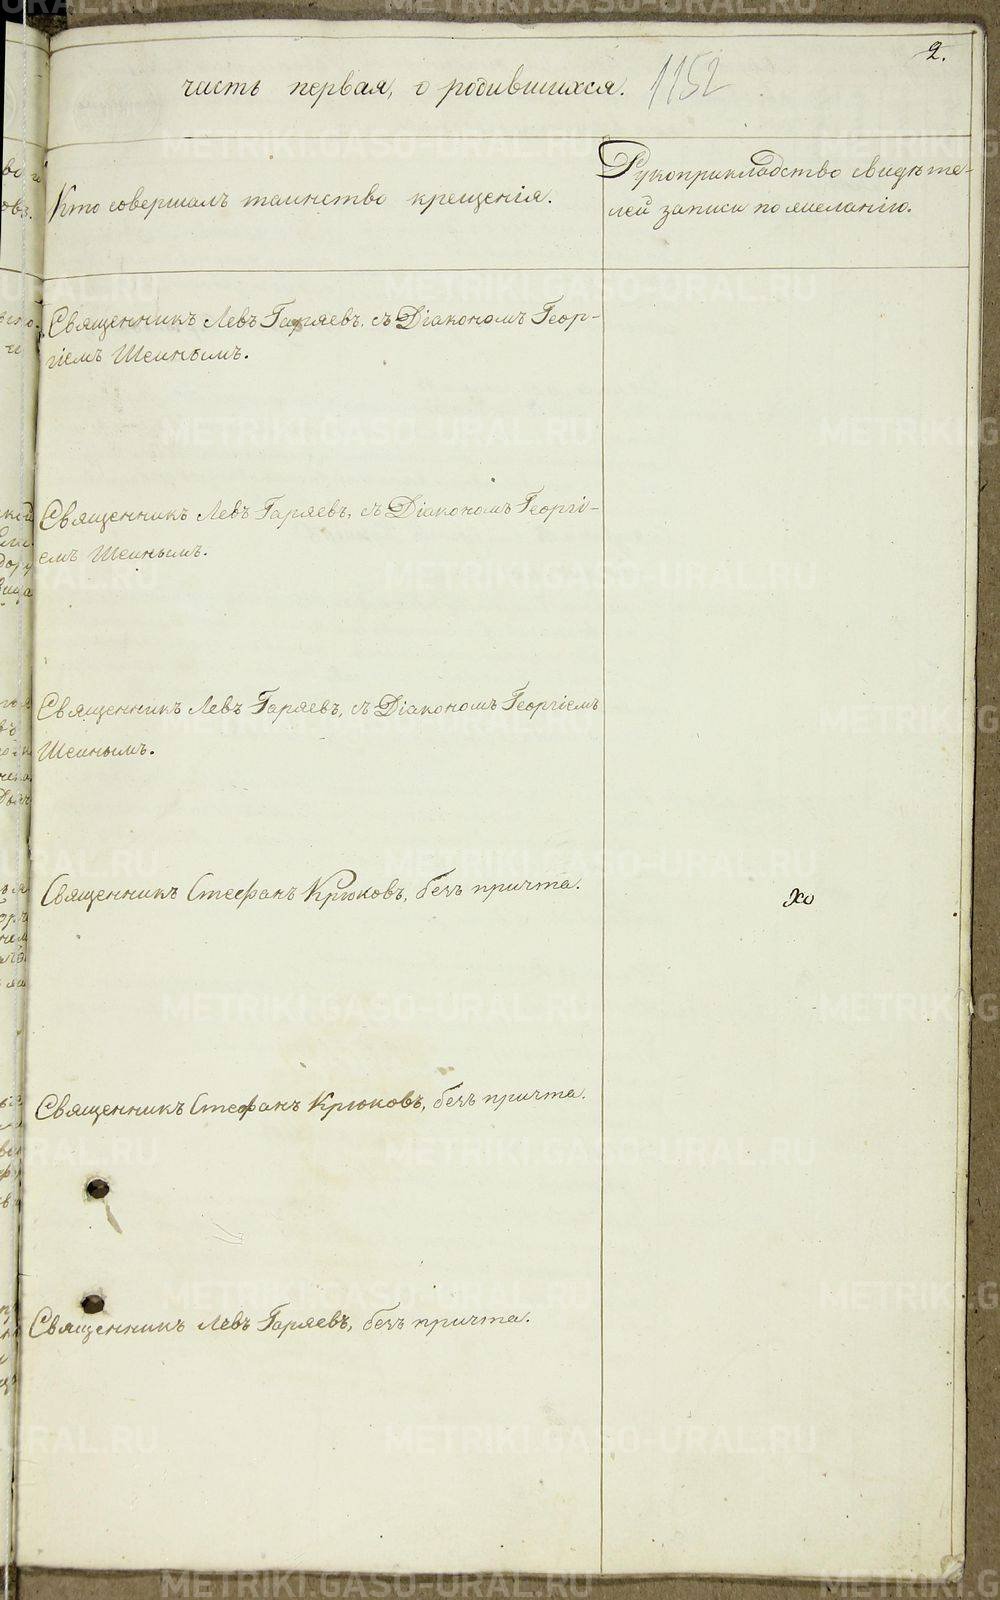 2.
часть первая, о родившихся. 1152
Кто совершалъ таинство крещенія.
Рукоприкладство свидѣте-
лей записи по желанію.
Священникъ Левъ Гаряевъ, съ Діакономъ Геор-
гіемъ Шеинымъ.
Священникъ Левъ Гаряевъ, съ Діакономъ Георгі-
емъ Шеинымъ.
Священникъ Левъ Гаряевъ, съ Діакономъ Георгіемъ
Шеинымъ.
Священникъ Стефанъ Крюковъ, безъ причта.
Священникъ Стефанъ Крюковъ, безъ причта.
Священникъ Левъ Гаряевъ, безъ причта.
METRIKI.GASO-URAL.RU